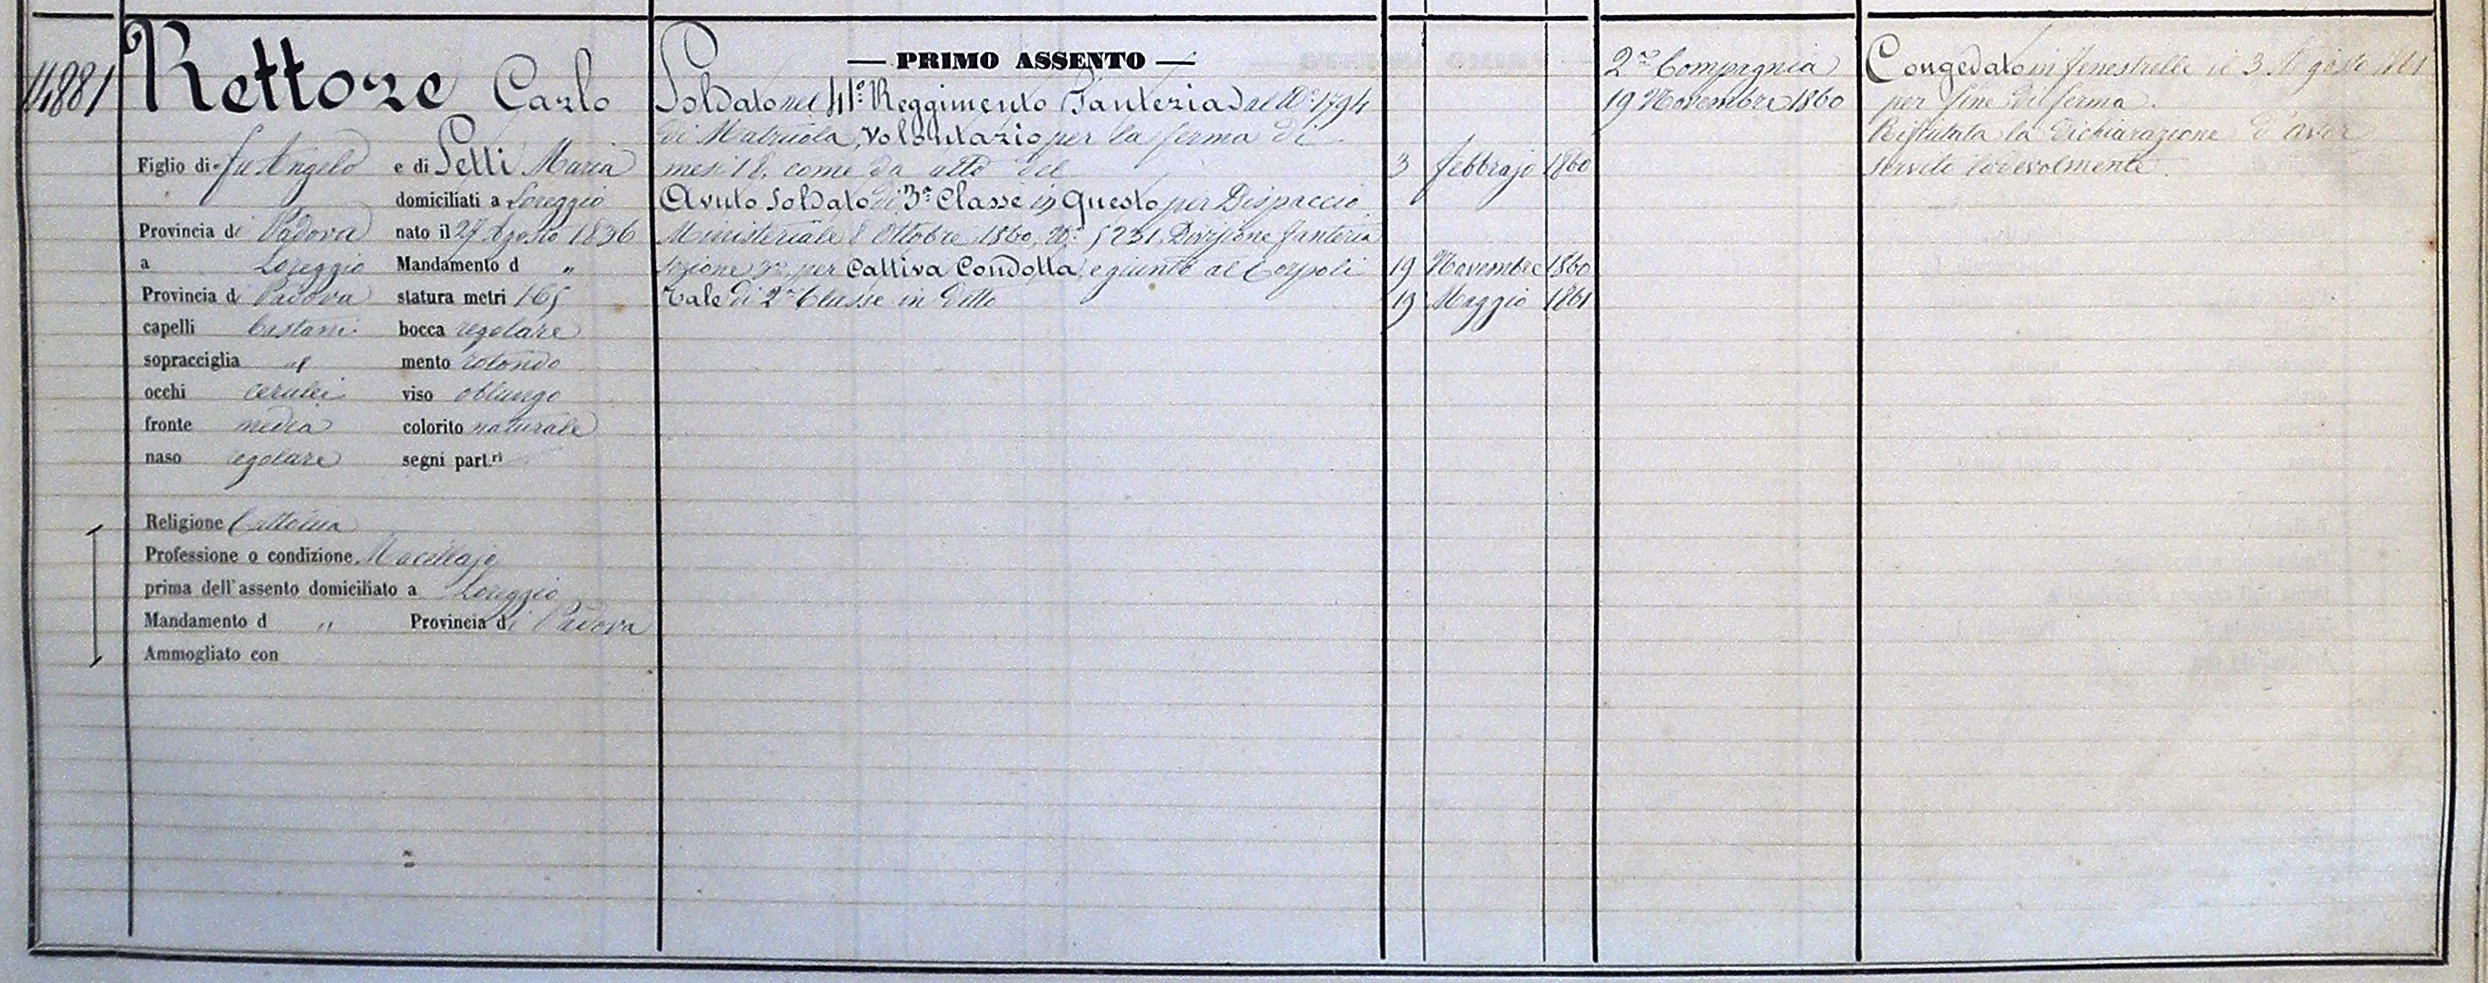 11881
Rettore Carlo
Figlio di fu Angelo e di Setti Maria
domiciliati a Loreggio
Provincia di Padova nato il 27 Agosto 1836
a Loreggio Mandamento d "
Provincia di Padova statura metri 165
capelli Castani bocca regolare
sopracciglia id mento rotondo
occhi cerulei viso oblungo
fronte media colorito naturale
naso regolare segni part.ri
Religione Cattolica
Professione o condizione Macellajo
prima dell'assento domiciliato a Loreggio
Mandamento d " Provincia di Padova
Ammogliato con
— PRIMO ASSENTO —
Soldato nel 41° Reggimento Fanteria al N° 1794
di Matricola, Volontario per la ferma di
mesi 18, come da atto del 3 febbrajo 1860
Avuto Soldato di 3a Classe in Questo per Dispaccio
Ministeriale 8 Ottobre 1860, N° 5231 Divisione fanteria
Sezione 3a per Cattiva Condotta, e giunto al Corpo li 19 Novembre 1860
Tale di 2a Classe in detto 19 Maggio 1861
2a Compagnia
19 Novembre 1860
Congedato in Fenestrelle il 3 Agosto 1861
per fine di ferma.
Rifiutata la dichiarazione d'aver
servito lodevolmente.